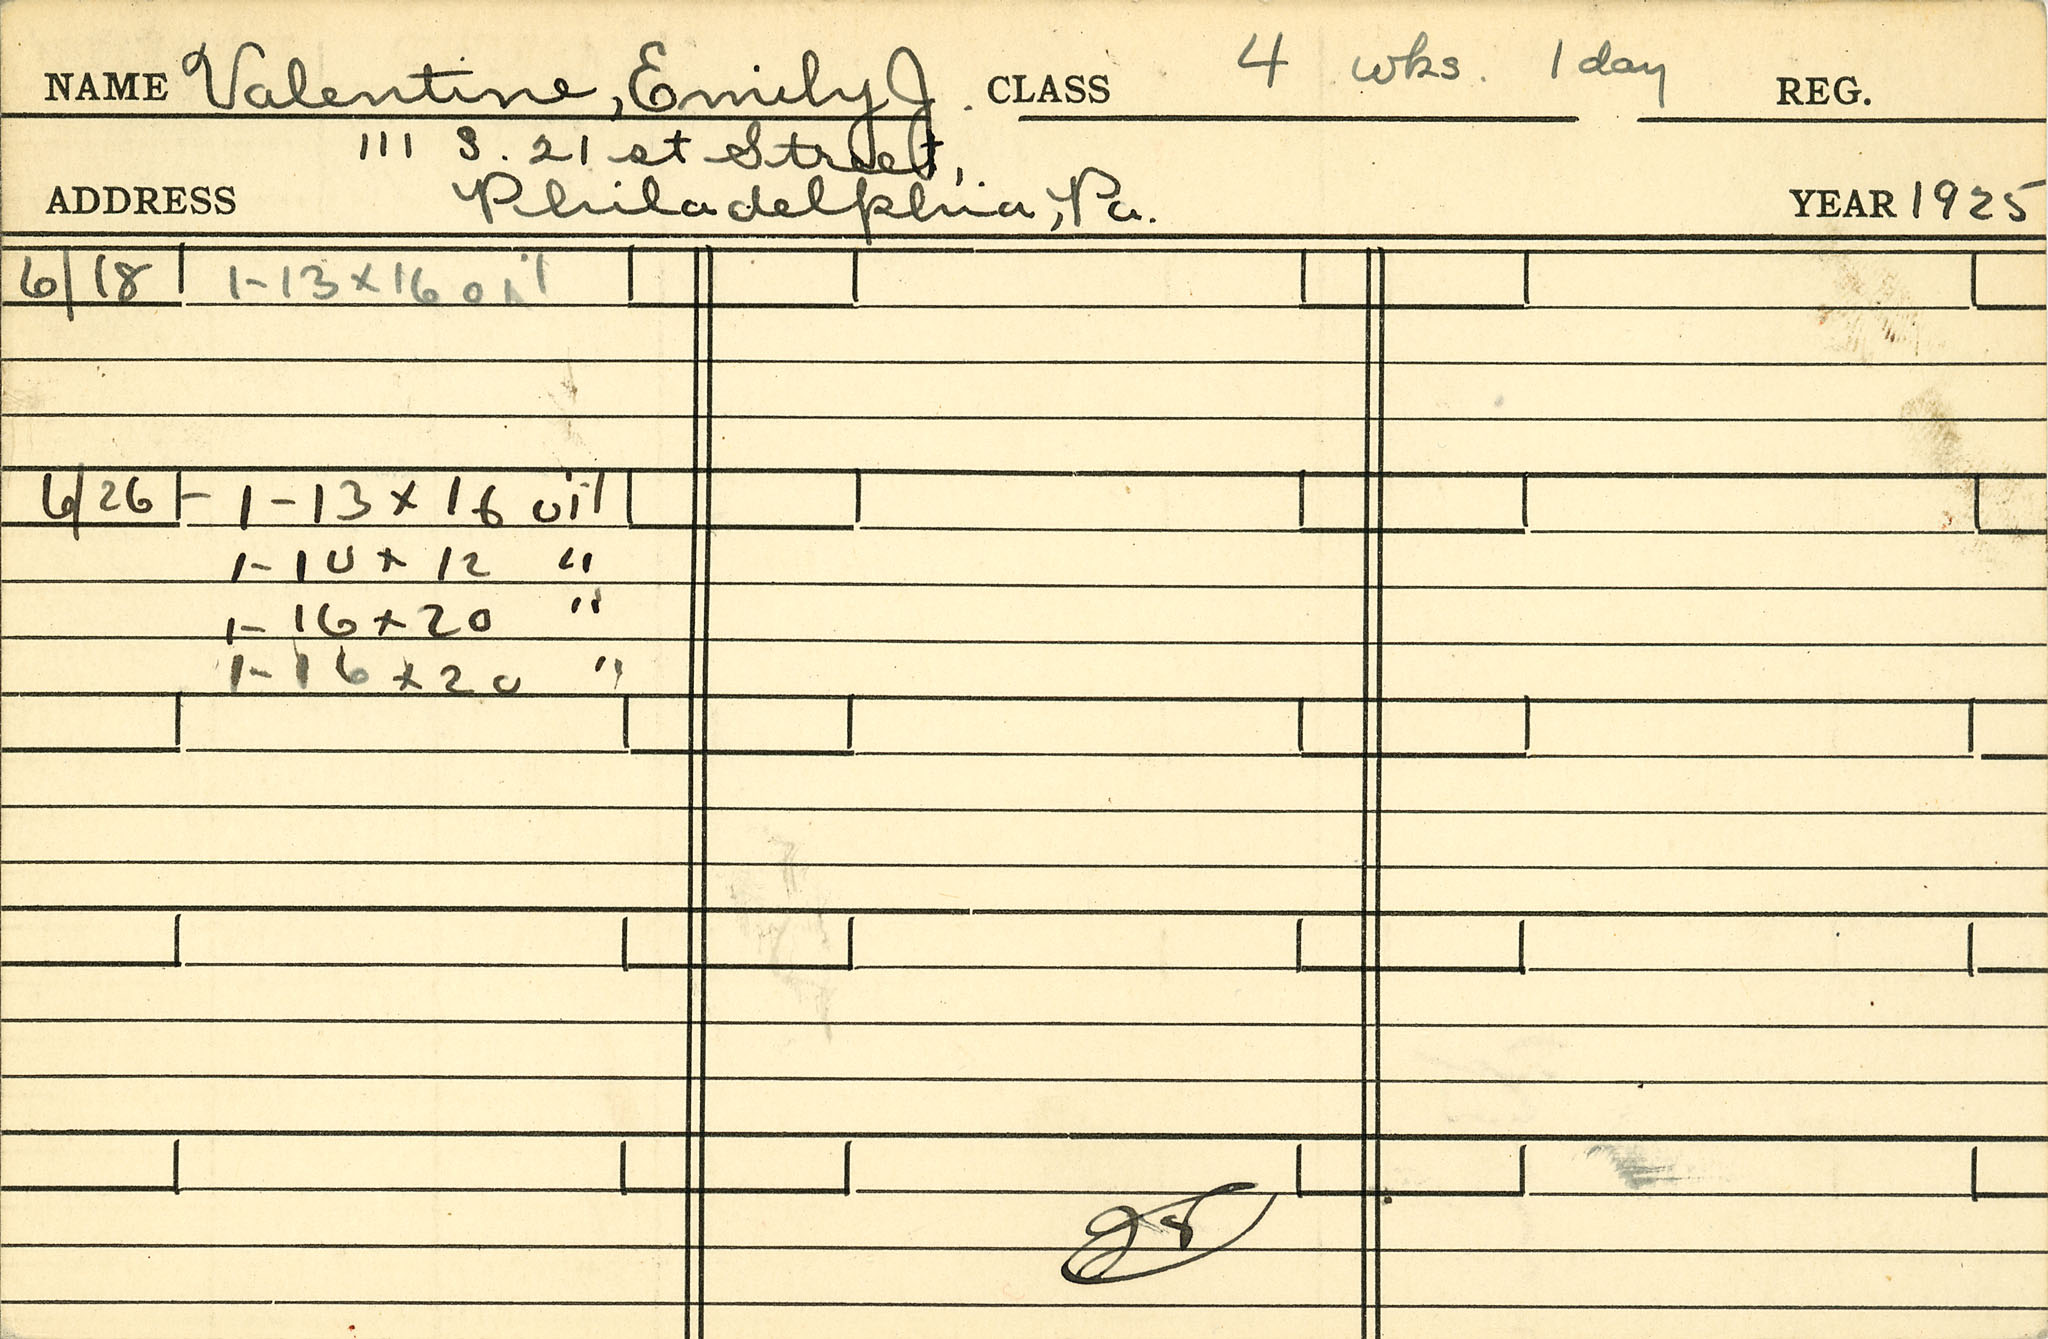 NAME Valentine, Emily J. CLASS 4 wks. 1 day REG.
111 S. 21 st Street,
ADDRESS Philadelphia, Pa. YEAR 1925
6/18 1-13x16 oil
6/26 - 1-13 x 16 oil
1-10 x 12 "
1-16 x 20 "
1-16 x 20 "